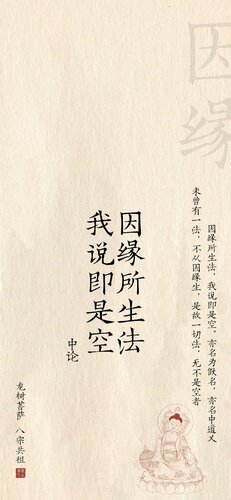 因缘
因缘所生法
我说即是空
中论
因缘所生法，我说即是空。亦名为假名，亦名中道义
未曾有一法，不从因缘生，是故一切法，无不是空者
龙树菩萨 八宗共祖